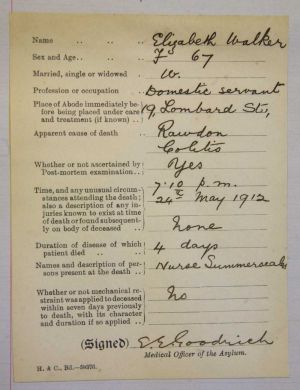 Name .. .. .. Elizabeth Walker
Sex and Age.. .. F 67
Married, single or widowed W.
Profession or occupation .. Domestic servant
Place of Abode immediately be- 19, Lombard St.,
fore being placed under care
and treatment (if known) .. Rawdon
Apparent cause of death .. Colitis
Whether or not ascertained by
Post-mortem examination.. Yes
Time, and any unusual circum- 7.10 p.m.
stances attending the death; 24th May 1912
also a description of any in-
juries known to exist at time
of death or found subsequent- none
ly on body of deceased ..
Duration of disease of which
patient died .. .. 4 days
Names and description of per- Nurse
sons present at the death ..
Whether or not mechanical re-
straint was applied to deceased No
within seven days previously
to death, with its character
and duration if so applied ..
(Signed) E. E. Goodrich
Medical Officer of the Asylum.
H. & C., Bd.—